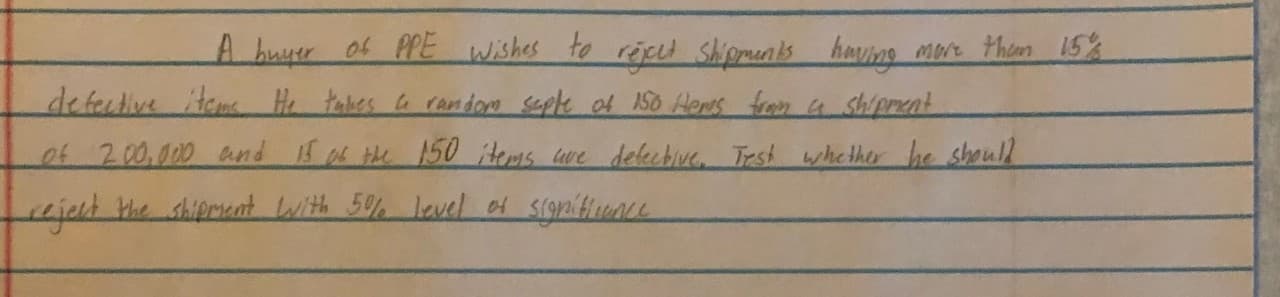 A buyer of PPE wishes to reject shipments having more than 15%
defective items He takes a random saple of 150 items from a shipment
of 200,000 and 15 of the 150 items are defective. Test whether he should
reject the shipment with 5% level of significance